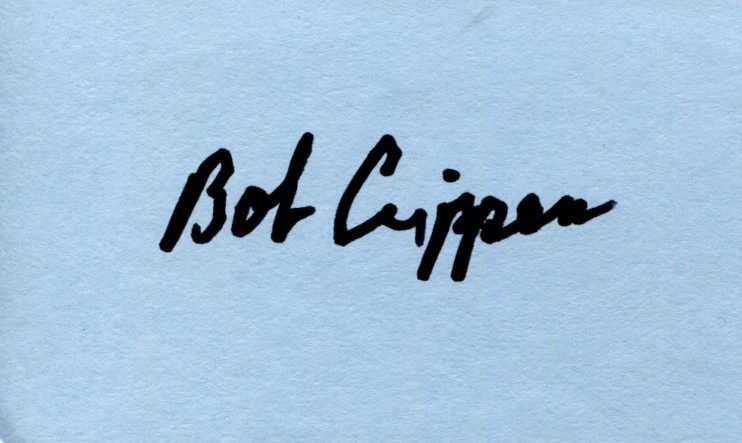 Bob Crippen